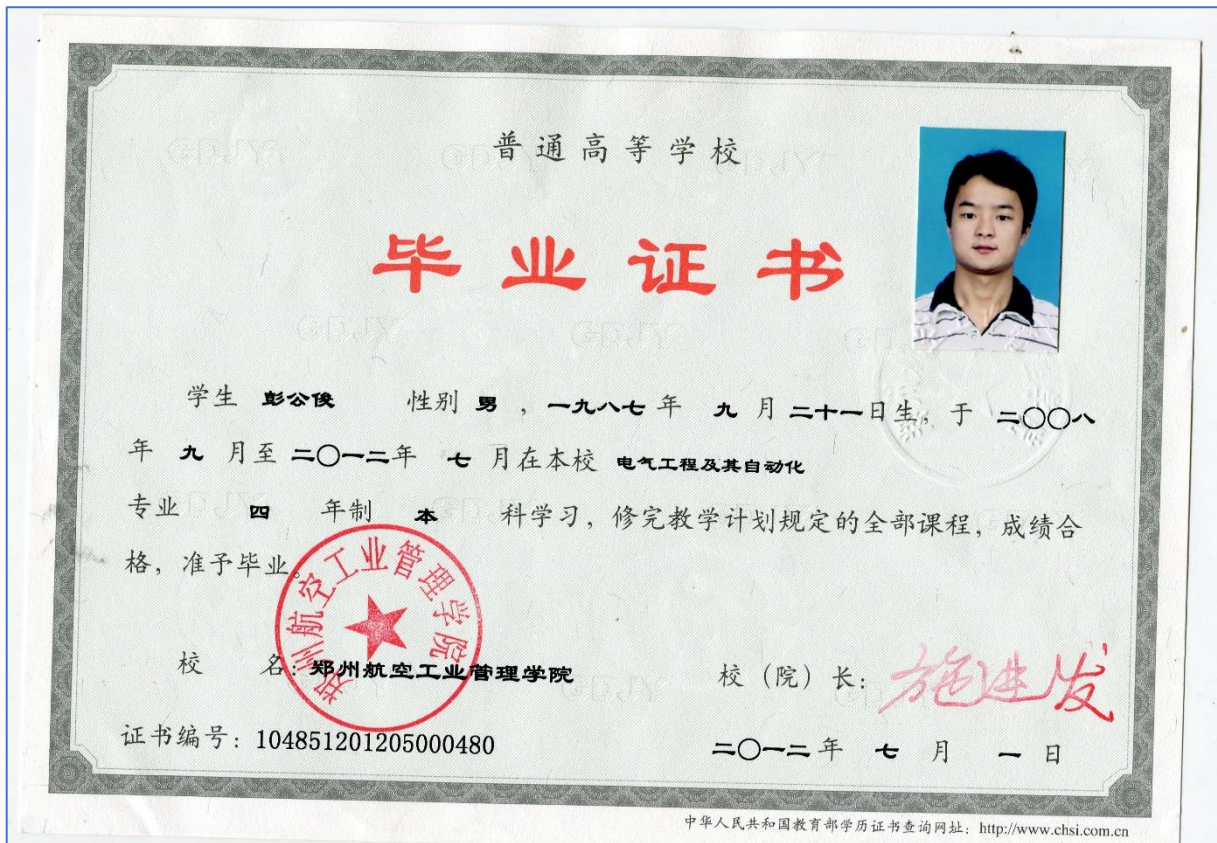 普通高等学校
毕业证书
学生 彭公俊 性别 男 ，一九八七 年 九 月 二十一日生，于 二〇〇八
年 九 月至 二〇一二年 七 月在本校 电气工程及其自动化
专业 四 年制 本 科学习，修完教学计划规定的全部课程，成绩合
格，准予毕业。
郑州航空工业管理学院
校 名：郑州航空工业管理学院
校（院）长：施进发
证书编号：104851201205000480
二〇一二 年 七 月 一 日
中华人民共和国教育部学历证书查询网址：http://www.chsi.com.cn